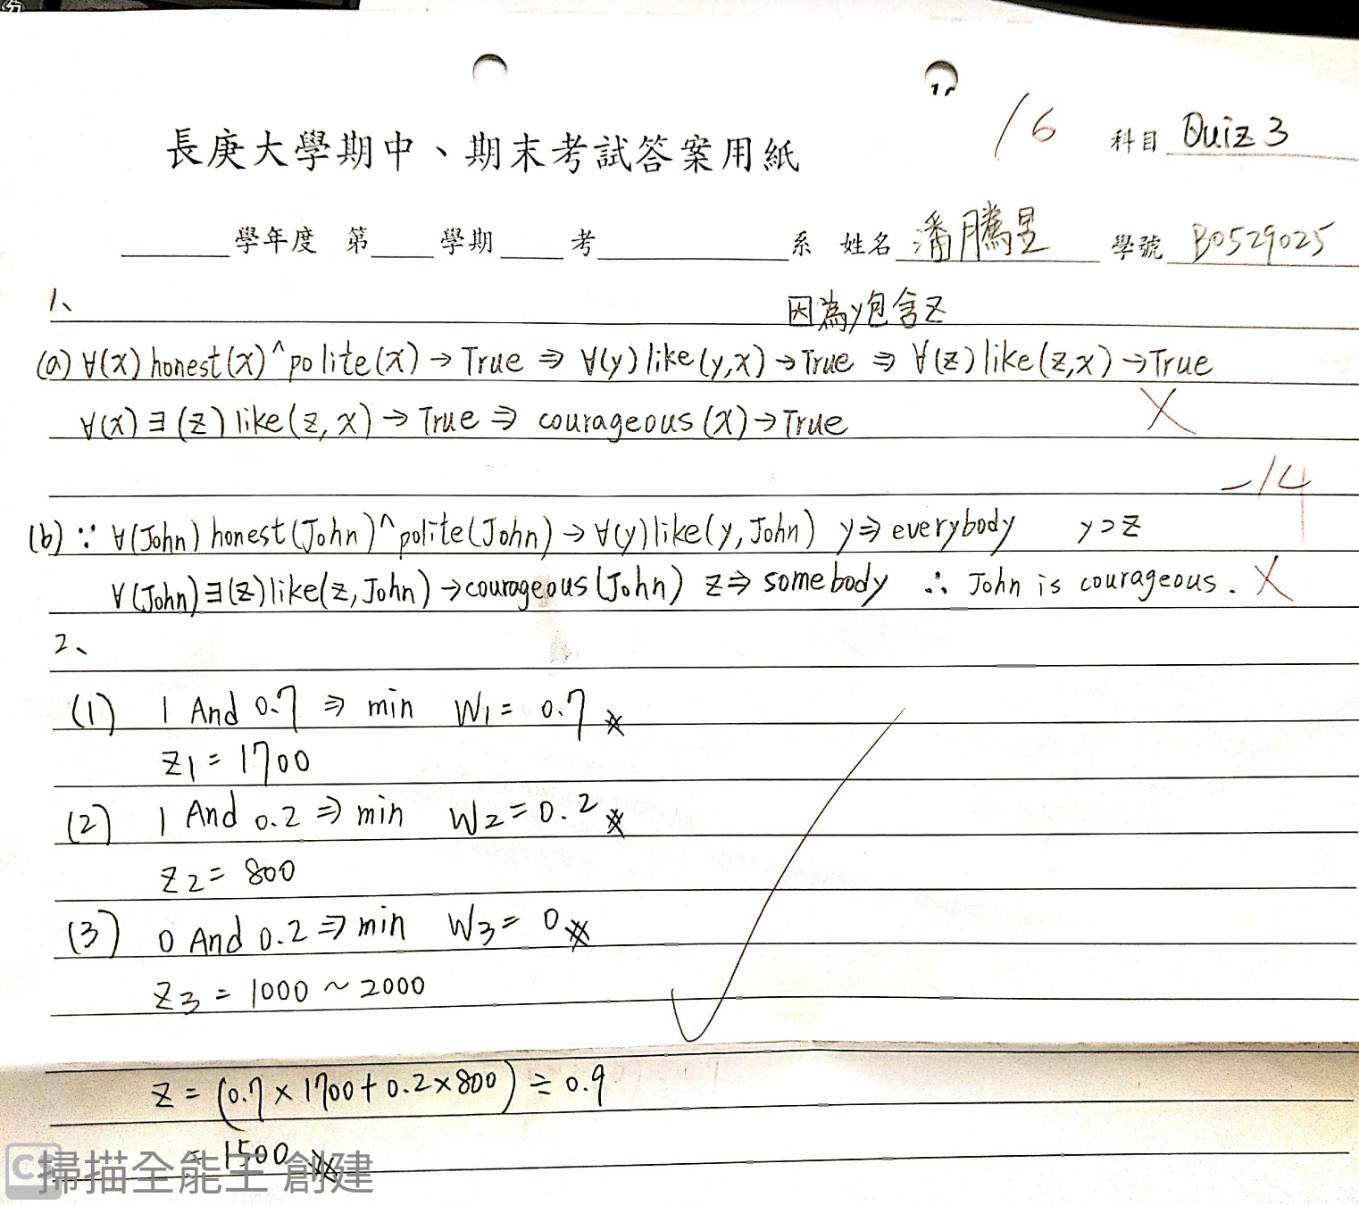 16 科目 Quiz 3
長庚大學期中、期末考試答案用紙
學年度 第 學期 考 系 姓名 潘騰昱 學號 B0529025
1、
因為y包含z
(a) ∀(x) honest(x)^polite(x) → True ⇒ ∀(y) like(y,x) → True ⇒ ∀(z) like(z,x) → True
∀(x) ∃(z) like(z,x) → True ⇒ courageous(x) → True
-14
(b) ∵ ∀(John) honest(John)^polite(John) → ∀(y) like(y,John) y⇒everybody y⊃z
∀(John) ∃(z) like(z,John) → courageous(John) z⇒somebody ∴ John is courageous.
2、
(1) 1 And 0.7 ⇒ min W1 = 0.7
z1 = 1700
(2) 1 And 0.2 ⇒ min W2 = 0.2
z2 = 800
(3) 0 And 0.2 ⇒ min W3 = 0
z3 = 1000 ~ 2000
z = (0.7 × 1700 + 0.2 × 800) ÷ 0.9
= 1500
掃描全能王 創建